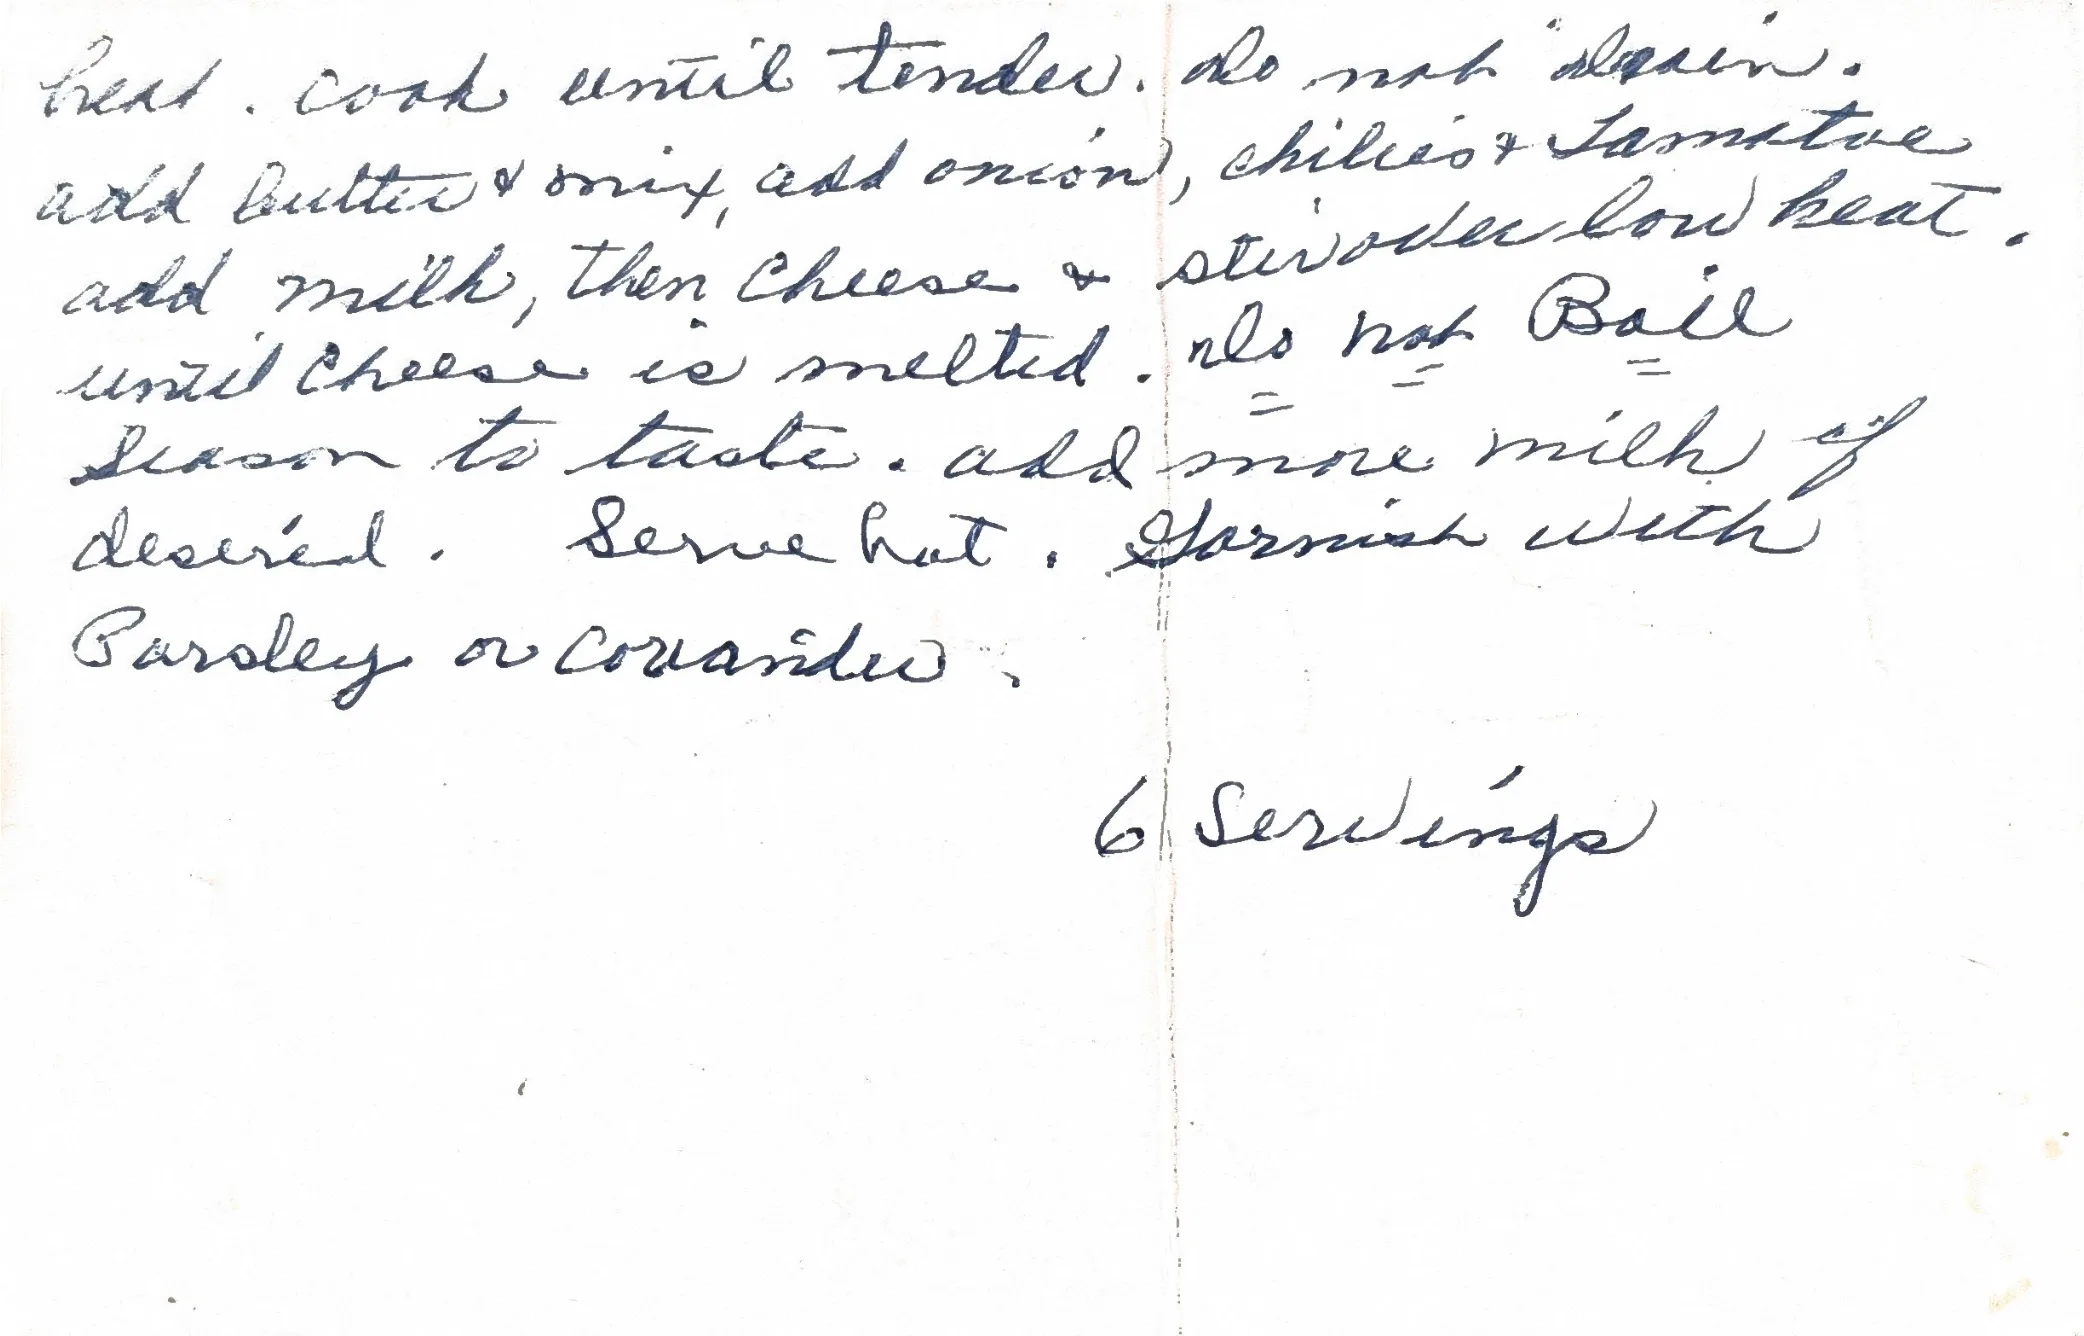 heat. cook until tender. do not drain.
add butter & mix, add onion, chilies & Tomatoe
add milk, then cheese & stir over low heat.
until cheese is melted. Do not Boil
Season to taste. add more milk if
desired. Serve hot. Garnish with
Parsley or coriander.
6 Servings